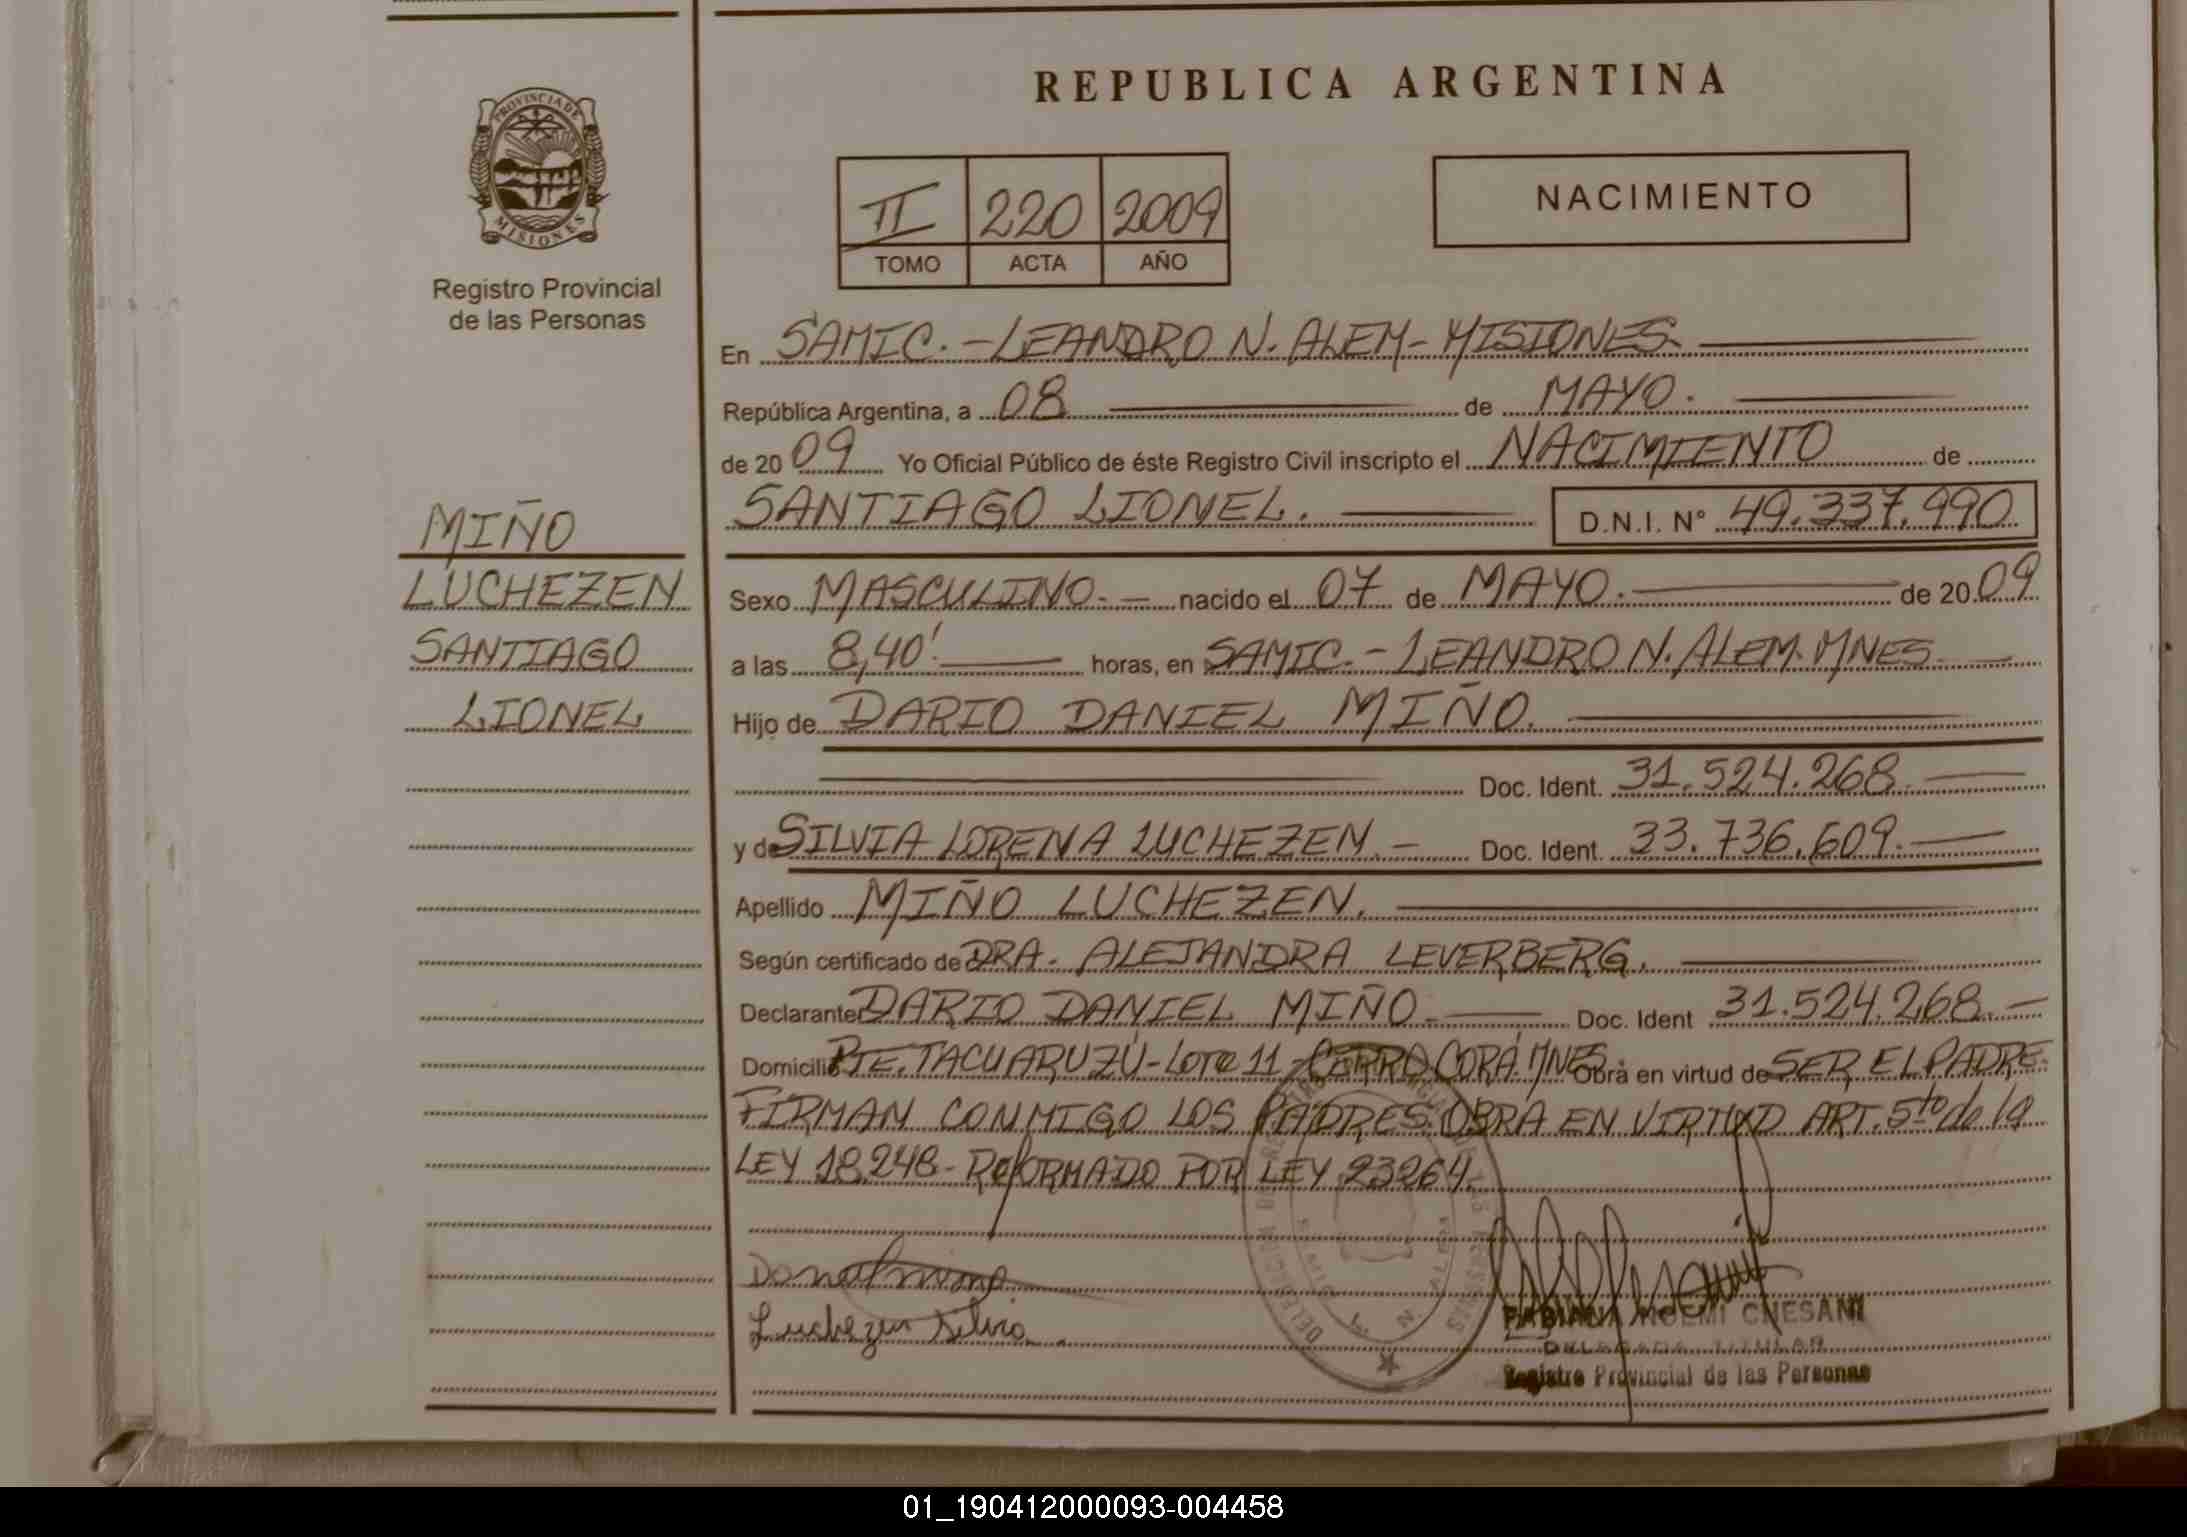 PROVINCIA DE
MISIONES
Registro Provincial
de las Personas
MIÑO
LUCHEZEN
SANTIAGO
LIONEL
REPUBLICA ARGENTINA
II 220 2009
TOMO ACTA AÑO
NACIMIENTO
En SAMIC.-LEANDRO N. ALEM-MISIONES.
República Argentina, a 08 de MAYO.
de 2009 Yo Oficial Público de éste Registro Civil inscripto el NACIMIENTO de
SANTIAGO LIONEL. D.N.I. N° 49.337.990
Sexo MASCULINO.- nacido el 07 de MAYO. de 2009
a las 8,40' horas, en SAMIC.-LEANDRO N. ALEM. MNES
Hijo de DARIO DANIEL MIÑO.
Doc. Ident. 31.524.268.
y de SILVIA LORENA LUCHEZEN.- Doc. Ident. 33.736.609.-
Apellido MIÑO LUCHEZEN.
Según certificado de DRA. ALEJANDRA LEVERBERG.
Declarante DARIO DANIEL MIÑO. Doc. Ident 31.524.268.-
Domicilio PTE. TACUARUZÚ-Lote 11-CERRO CORÁ. MNES Obra en virtud de SER EL PADRE.
FIRMAN CONMIGO LOS PADRES. OBRA EN VIRTUD ART. 5to de la
LEY 18.248-ReFORMADO POR LEY 23264.
Luchezen Silvia
FABIANA NOEMI CHESANI
DELEGADA TITULAR
Registro Provincial de las Personas
01_190412000093-004458